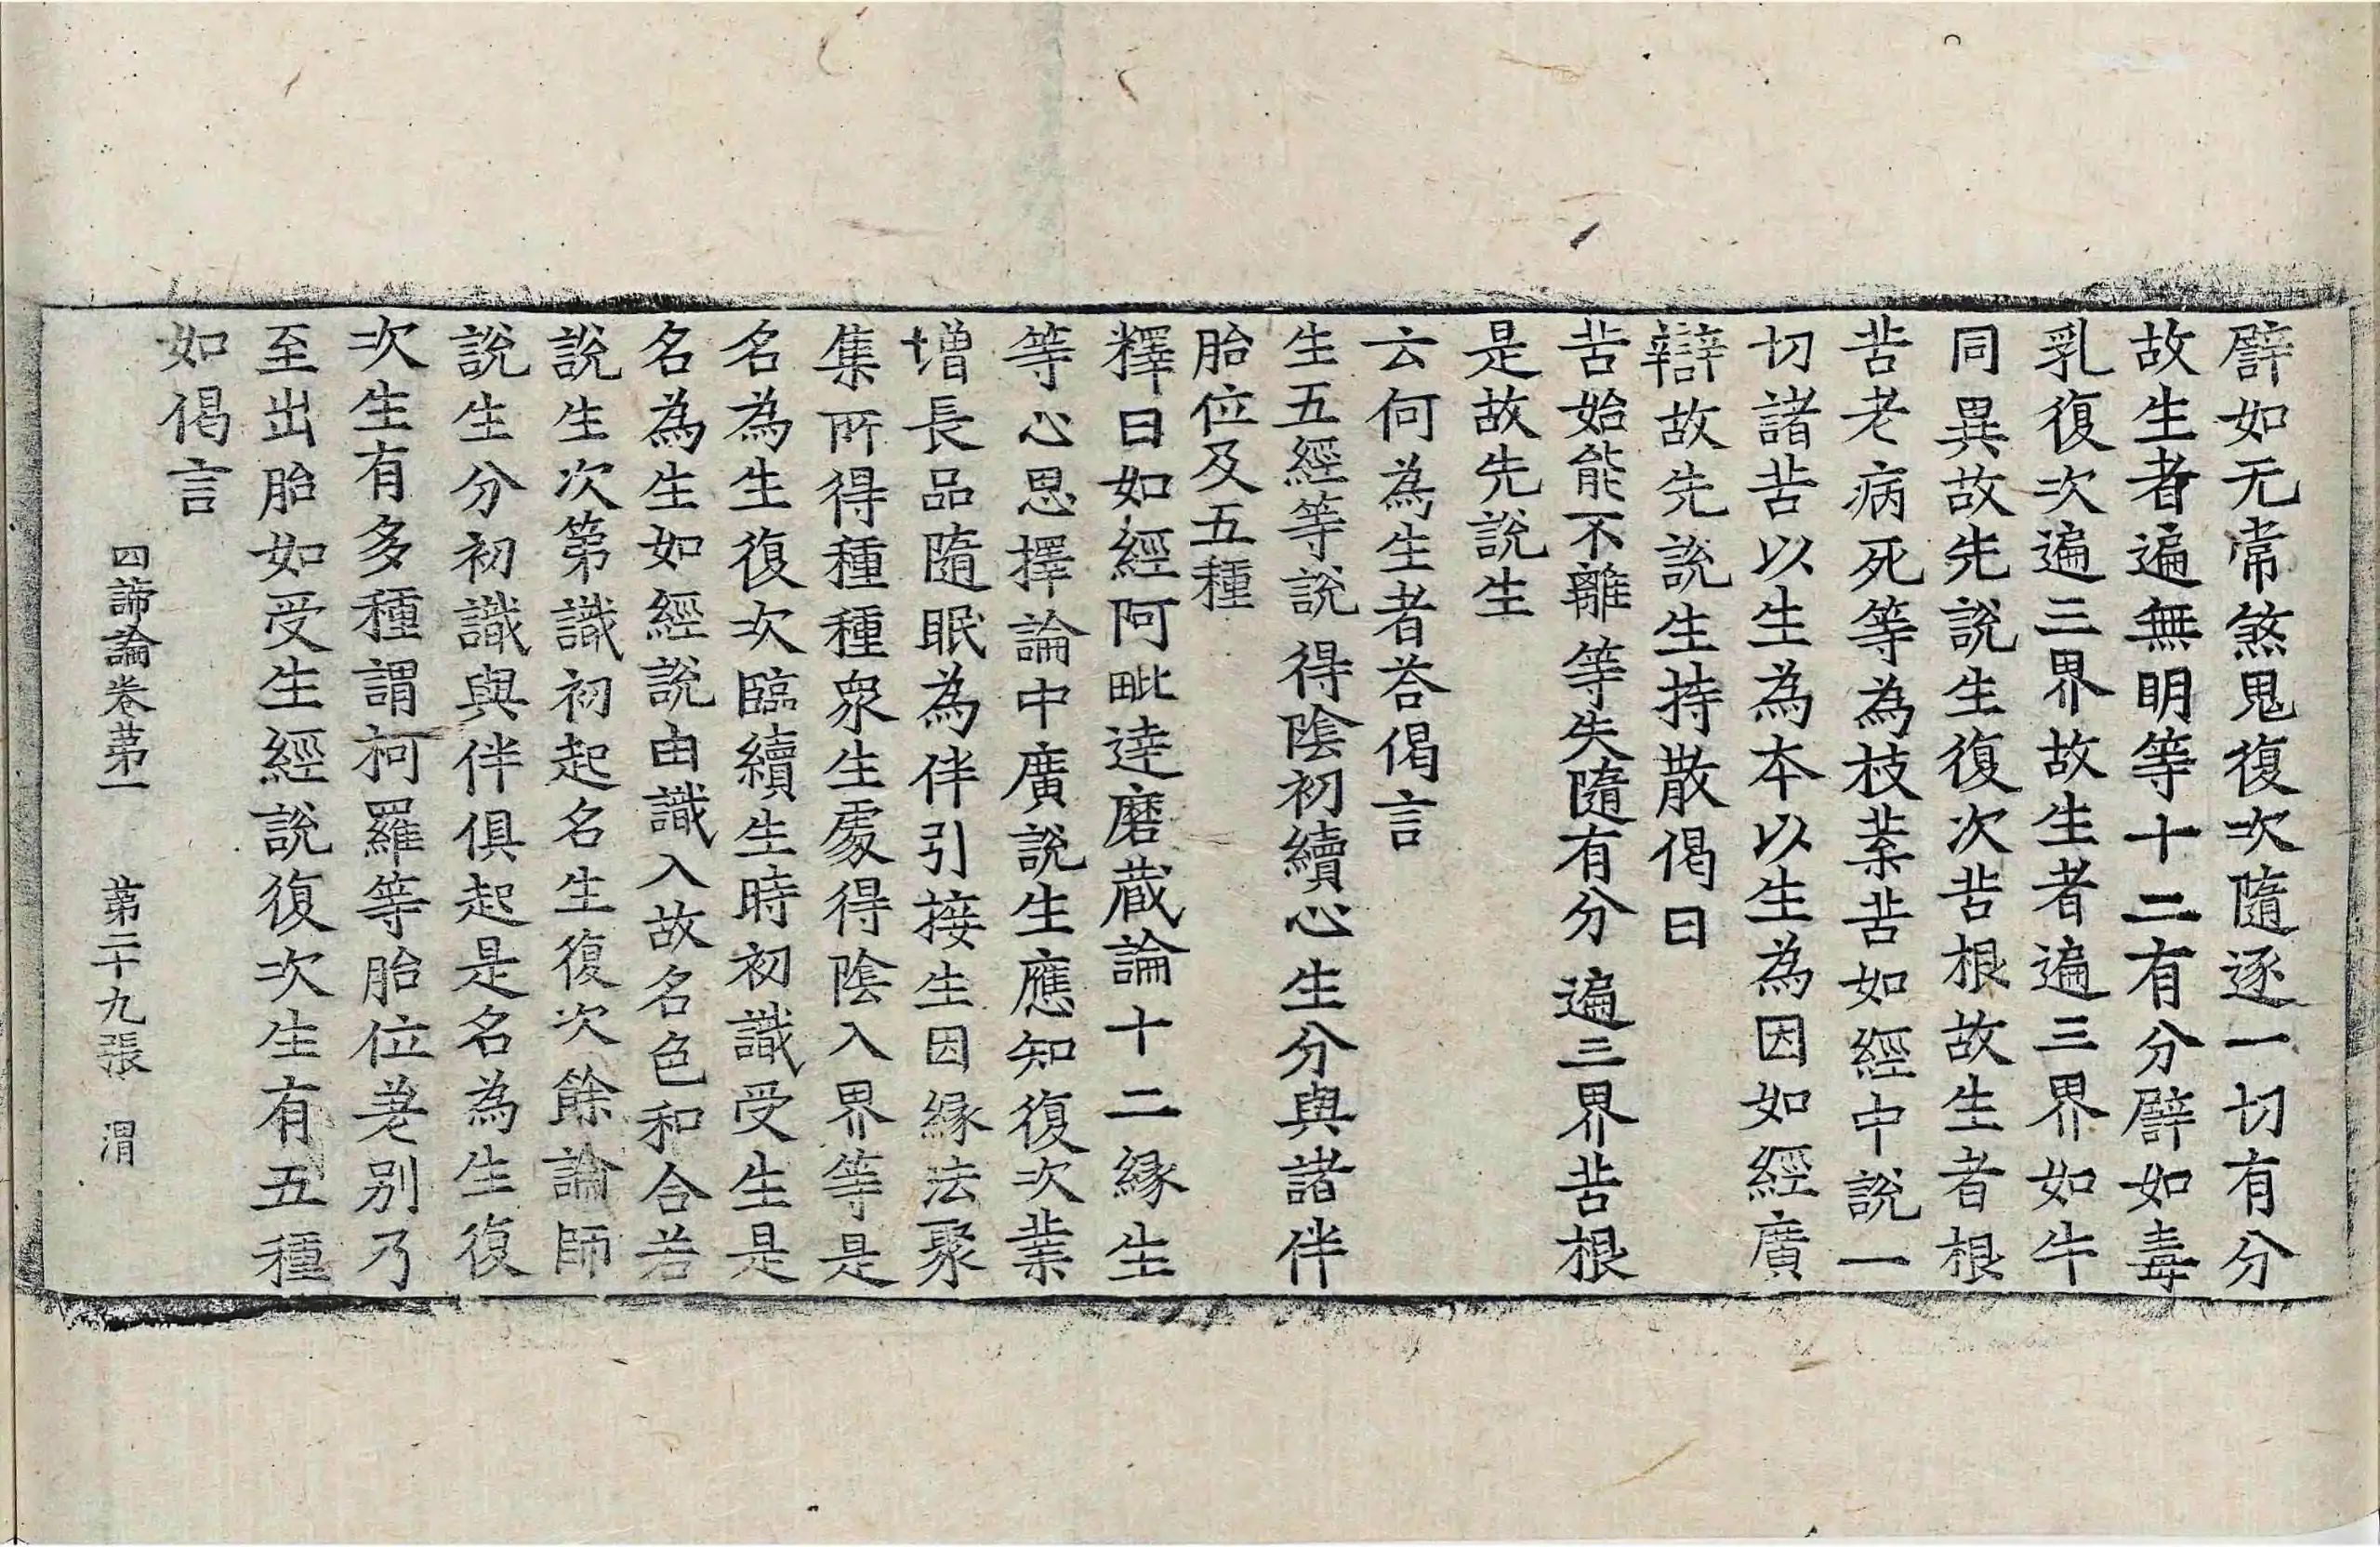 譬如无常煞鬼復次隨逐一切有分
故生者遍無明等十二有分譬如毒
乳復次遍三界故生者遍三界如牛
同異故先說生復次苦根故生者根
苦老病死等為枝葉苦如經中說一
切諸苦以生為本以生為因如經廣
辯故先說生持散偈曰
苦始能不離等失隨有分遍三界苦根
是故先說生
云何為生者荅偈言
生五經等說得陰初續心生分與諸伴
胎位及五種
釋曰如經阿毗達磨蔵論十二緣生
等心思擇論中廣說生應知復次業
增長品隨眠為伴引接生因緣法聚
集所得種種眾生處得陰入界等是
名為生復次臨續生時初識受生是
名為生如經說由識入故名色和合若
說生次第識初起名生復次餘論師
說生分初識與伴俱起是名為生復
次生有多種謂柯羅等胎位差別乃
至出胎如受生經說復次生有五種
如偈言
四諦論卷第一 第二十九張 渭